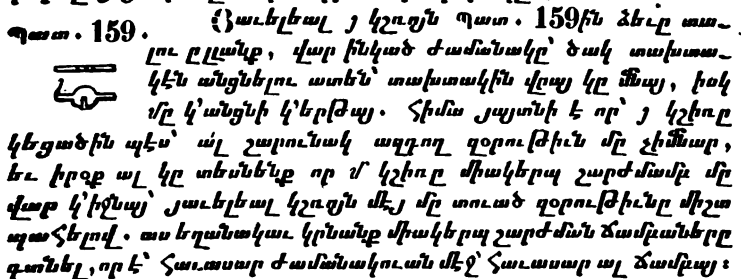 Պատ. 159.
Յաւելեալ յ կշռոյն Պատ. 159ին ձեւը տա֊
լու ըլլանք, վար ինկած ժամանակը՝ ծակ տախտա֊
կէն անցնելու ատեն՝ տախտակին վրայ կը մնայ, իսկ
մը կ՚անցնի կ՚երթայ. Հիմա յայտնի է որ՝ յ կշիռը
կեցածին պէս՝ ա՛լ շարունակ ազդող զօրութիւն մը չիմնար,
եւ իրօք ալ կը տեսնենք որ մ կշիռը միակերպ շարժմամբ մը
վար կ՚իջնայ՝ յաւելեալ կշռոյն մէյ մը տուած զօրութիւնը միշտ
պահելով. աս եղանակաւ կրնանք միակերպ շարժման ճամբաները
գտնել, որ է՝ հաւասար ժամանակուան մէջ՝ հաւասար ալ ճամբայ։